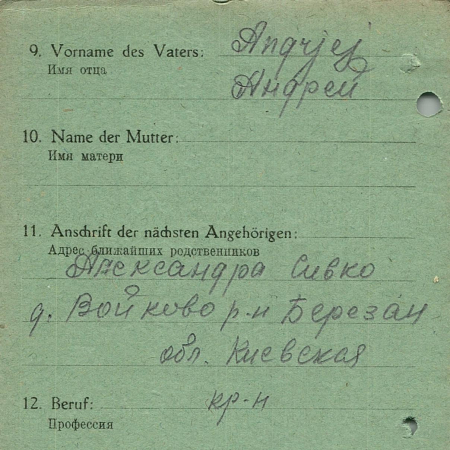 9. Vorname des Vaters: Andrjej
Имя отца Андрей
10. Name der Mutter:
Имя матери
11. Anschrift der nächsten Angehörigen:
Адрес ближайших родственников
Александра Сивко
д. Войково р-н Березан
обл. Киевская
12. Beruf: кр-н
Профессия